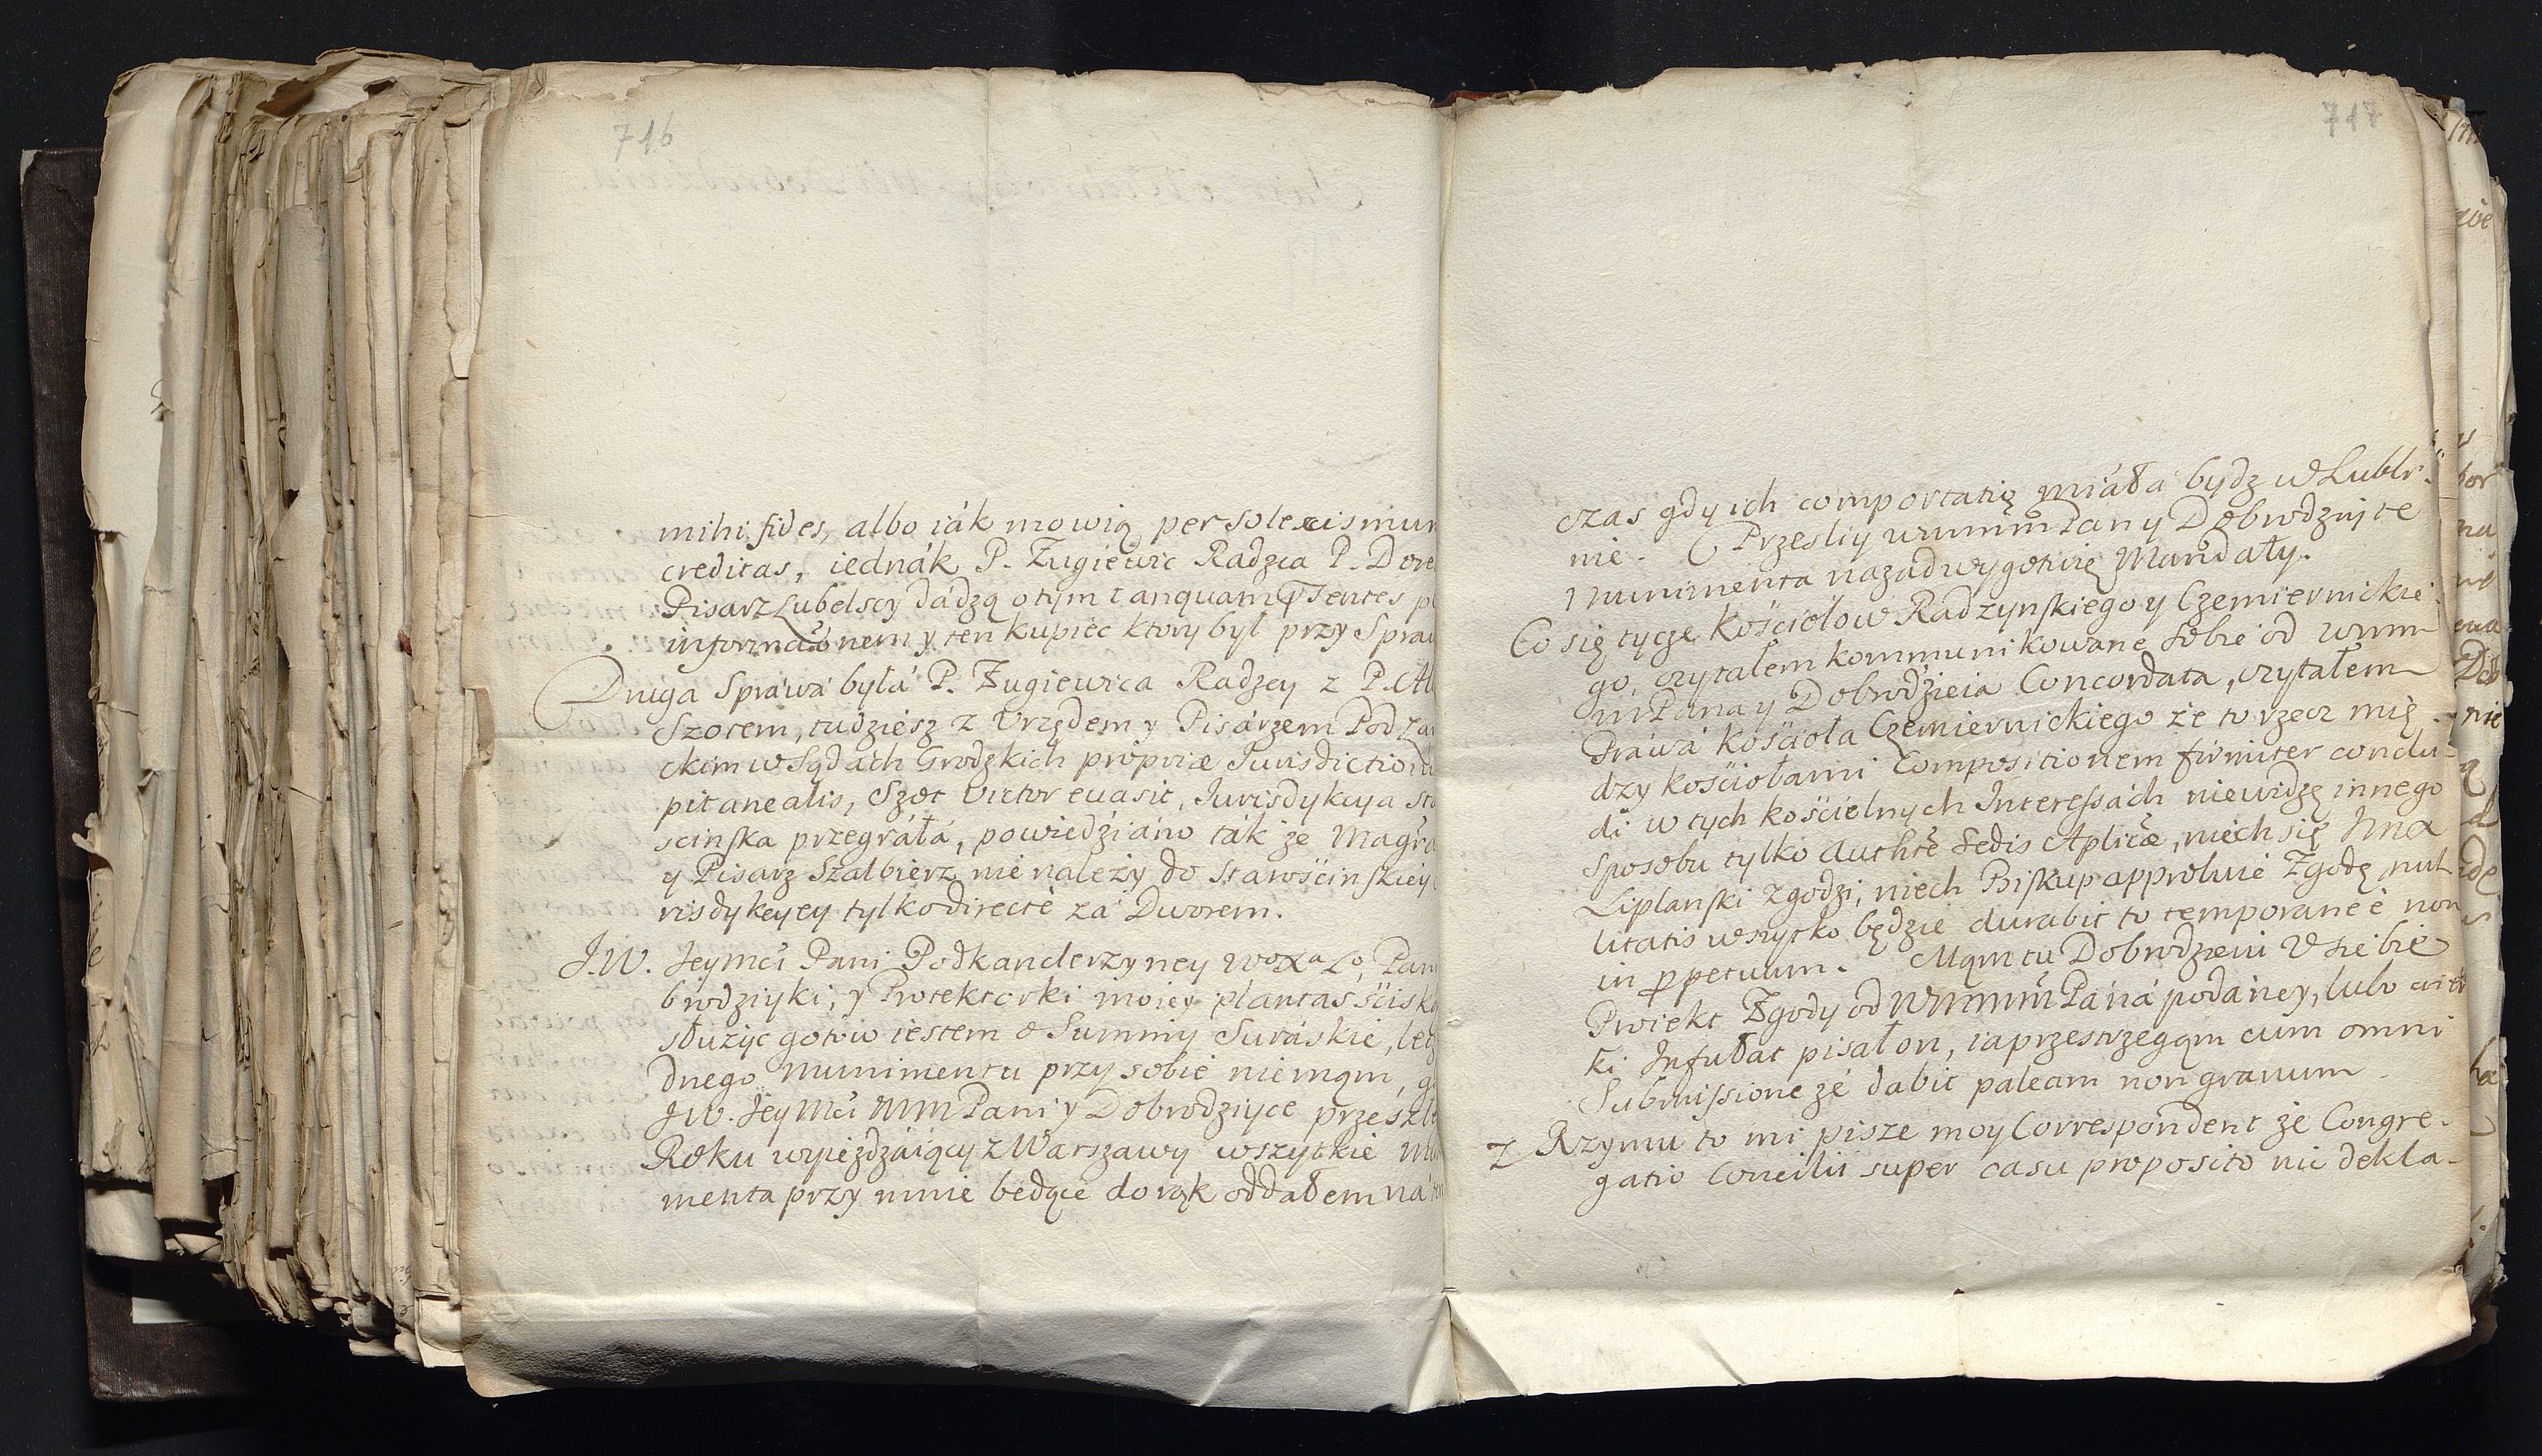 716
mihi fides, albo iák mowią per solecismum
creditas, iednák P. Zugiewic Radzca P. Dore
Pisarz Lubelscy dádzą o tym tanquam
informãonem y ten kupiec ktory był przy Spraw
Druga Spráwá byłá P. Zugiewica Radzcy z P.
Szotem, tudziesz z Vrzędem y Pisárzem Pod Zam
ckim w Sądách Grodzkich propriæ Jurisdictionis
pitanealis, Szot Victor euasit, Jurisdykcya Sta
scinska przegráłá, powiedziáno ták że Magra
y Pisarz Szalbierz nie należy do Starościńskiey
risdykcyey tylko directè zá Dworem.
J.W. Jeymći Pani Podkanclerzyney WoXa Lo, Pani
brodziyki, y Protektorki moiey plantas ścisk
służyc gotow iestem o Summy Suráskie, lecz
dnego munimentu przy sobie niemąm, g
JW. Jey Mći MM Pani y Dobrodziyce przeszłe
Roku wyieżdzáiący z Warszawy wszytkie Mun
menta przy mnie będące do rąk oddałem ná
717
czas gdy ich comportatię miáłá bydz w Lubli
nie. Przesliy wmmm Pan y Dobrodziy te
munimenta nazad wygotuię Mandáty.
Co się tycze Kościołow Radzynskiego y Czemiernickie
go, czytałem kommunikowane sobie od wmm
mPana y Dobrodzieia Concordata, czytałem
Práwá kościoła Czemiernickiego że to rzecz mię
dzy kościołami Compositionem firmiter conclu-
di w tych kościelnych Interessách niewidzę innego
sposobu tylko Authte Sedis Aplicæ, niech się Jmx
Liplanski zgodzi, niech Biskup approbuie Zgodę nul
litatis wszytko będzie durabit to temporaneè non
in perpetuum. Mąm tu Dobrodzieiu V siebie
Proiekt Zgody od Wmmm Páná podáney, lubo
ki Infułat pisał on, ia przestrzegąm cum omni
Submissione że dabit paleam non granum
z Rzymu to mi pisze moy Correspondent że Congre-
gatio Concilii super casu proposito nie dekla-